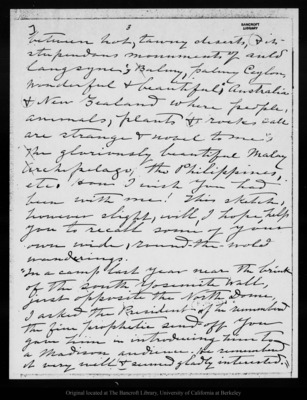 3
BANCROFT
LIBRARY
between hot, tawny deserts, & its
stupendous monuments of auld
langsyne; Balmy, balmy Ceylon,
wonderful & beautiful; Australia
& New Zealand where people,
animals, plants & rocks all
are strange & novel to me;
The gloriously beautiful Malay
Archipelago, the Philippines,
etc. how I wish you had
been with me! This sketch,
however slight, will, I hope, help
you to recall some of your
own wide, round-the-world
wanderings.
In a camp last year near the brink
of the south Yosemite Wall,
just opposite the North Dome,
I asked the President if he remembered
the fine prophetic send off you
gave him in introducing him to
a Madison audience. He remembered
it very well & seemed gladly interested.
Original located at The Bancroft Library, University of California at Berkeley